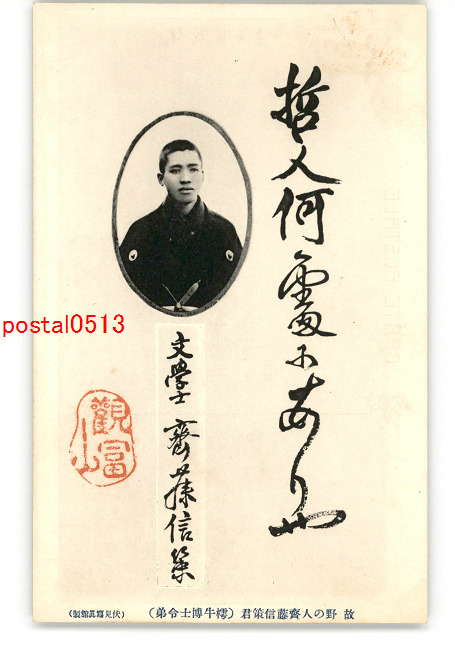 哲人何處にありや
文學士 齋藤信策
觀富山
postal0513
故 野の人齋藤信策君 (樗牛博士令弟)
(伏見寫眞舘製)